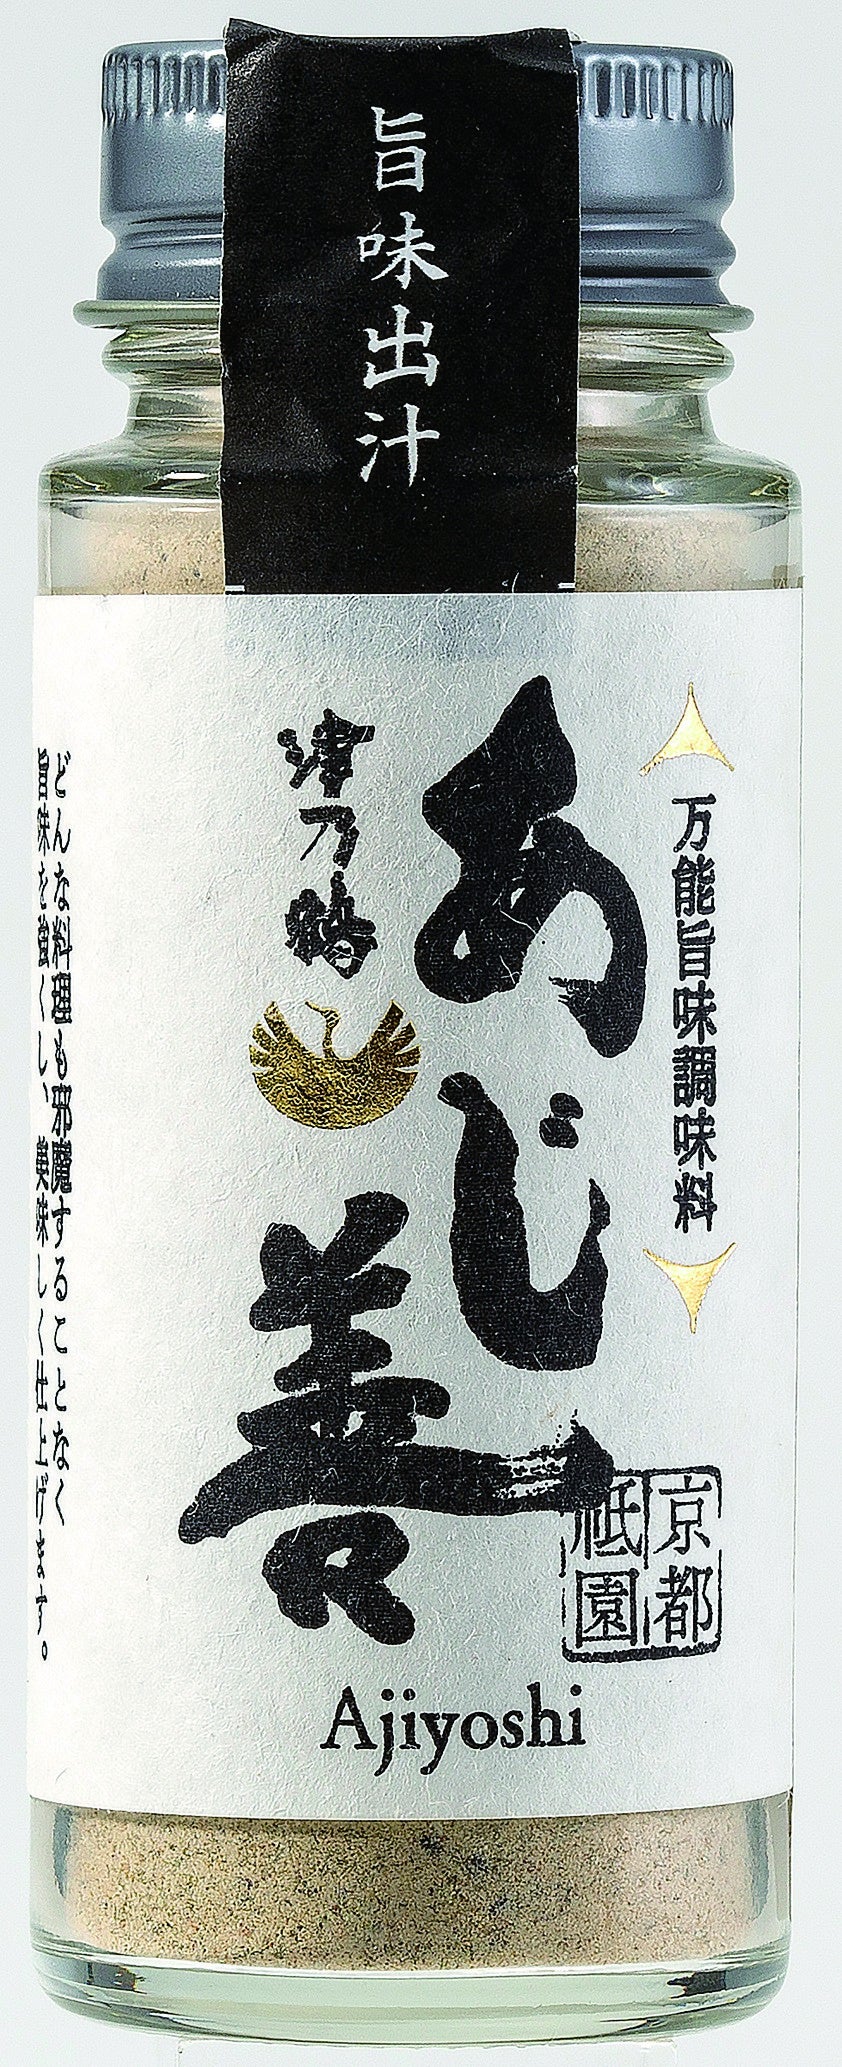 旨味出汁
万能旨味調味料
あじ善
津乃嬉
京都
祇園
どんな料理も邪魔することなく
旨味を強くし、美味しく仕上げます。
Ajiyoshi